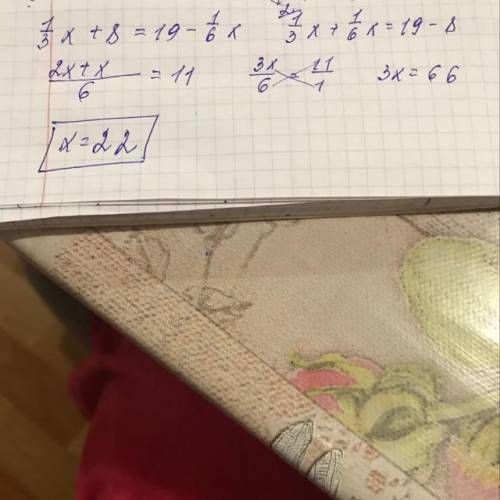 1/3 x + 8 = 19 - 1/6 x    2 1/3 x + 1/6 x = 19 - 8
2x+x/6 = 11    3x/6 = 11/1    3x = 66
x = 22